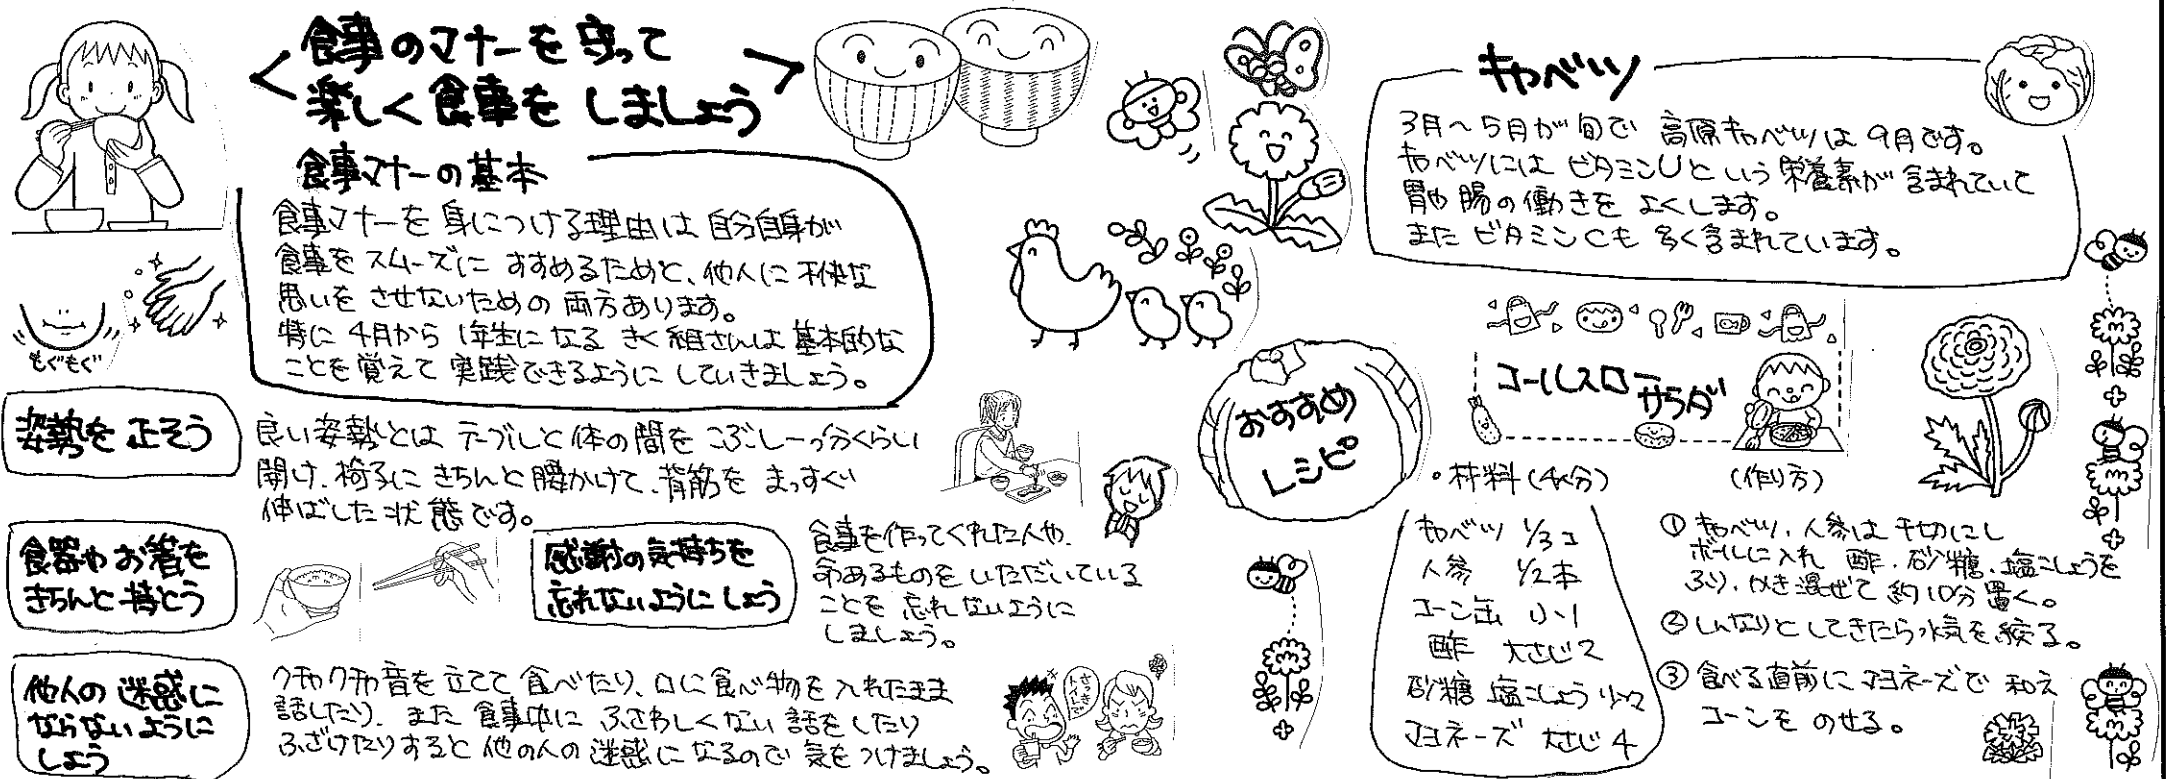 食事のマナーを守って
楽しく食事をしましょう
食事マナーの基本
食事マナーを身につける理由は自分自身が
食事をスムーズにすすめるためと、他人に不快な
思いをさせないための両方あります。
特に4月から1年生になるきく組さんは基本的な
ことを覚えて実践できるようにしていきましょう。
もぐもぐ
姿勢を正そう
良い姿勢とはテーブルと体の間をこぶし一つ分くらい
開け、椅子にきちんと腰かけて、背筋をまっすぐ
伸ばした状態です。
食器やお箸を
きちんと持とう
感謝の気持ちを
忘れないようにしよう
食事を作ってくれた人や、
命あるものをいただいている
ことを忘れないように
しましょう。
他人の迷惑に
ならないように
しよう
クチャクチャ音を立てて食べたり、口に食べ物を入れたまま
話したり、また食事中にふさわしくない話をしたり
ふざけたりすると他の人の迷惑になるので気をつけましょう。
さっき
トイレで
キャベツ
3月～5月が旬で高原キャベツは9月です。
キャベツにはビタミンUという栄養素が含まれていて
胃や腸の働きをよくします。
またビタミンCも多く含まれています。
おすすめ
レシピ
コールスロー
サラダ
・材料(4人分)
キャベツ 1/3コ
人参 1/2本
コーン缶 小1
酢 大さじ2
砂糖 塩こしょう 少々
マヨネーズ 大さじ4
(作り方)
① キャベツ、人参は千切にし
ボールに入れ 酢、砂糖、塩こしょうを
ふり、かき混ぜて約10分置く。
② しんなりとしてきたら水気を絞る。
③ 食べる直前にマヨネーズで和え
コーンをのせる。